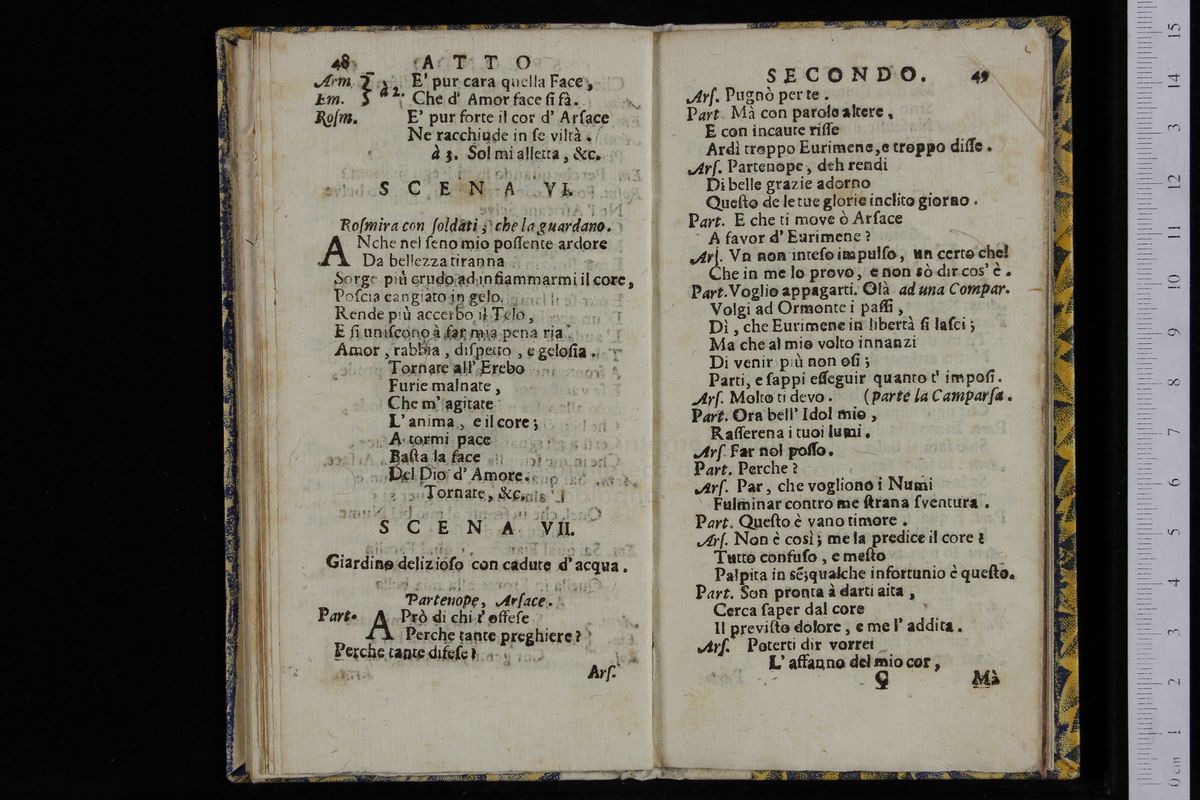 48 ATTO
Arm. à 2. E' pur cara quella Face,
Em. Che d' Amor face si fà.
Rosm. E' pur forte il cor d' Arsace
Ne racchiude in se viltà.
à 3. Sol mi alletta, &c.
SCENA VI.
Rosmira con soldati, che la guardano.
ANche nel seno mio possente ardore
Da bellezza tiranna
Sorge più crudo ad infiammarmi il core,
Poscia cangiato in gelo.
Rende più accerbo il Telo,
E si uniscono à far mia pena ria
Amor, rabbia, dispetto, e gelosia.
Tornate all' Erebo
Furie malnate,
Che m' agitate
L' anima, e il core;
A tormi pace
Basta la face
Del Dio d' Amore.
Tornate, &c.
SCENA VII.
Giardino delizioso con cadute d'acqua.
Partenope, Arsace.
Part. APrò di chi t' offese
Perche tante preghiere?
Perche tante difese?
Ars.
SECONDO. 49
Ars. Pugnò per te.
Part. Mà con parole altere,
E con incaute risse
Ardì troppo Eurimene, e troppo disse.
Ars. Partenope, deh rendi
Di belle grazie adorno
Questo de le tue glorie inclito giorno.
Part. E che ti move ò Arsace
A favor d' Eurimene?
Ars. Vn non inteso impulso, un certo che!
Che in me lo provo, e non sò dir cos' è.
Part. Voglio appagarti. Olà ad una Compar.
Volgi ad Ormonte i passi,
Dì, che Eurimene in libertà si lasci;
Ma che al mio volto innanzi
Di venir più non osi;
Parti, e sappi esseguir quanto t' imposi.
Ars. Molto ti devo. (parte la Camparsa.
Part. Ora bell' Idol mio,
Rasserena i tuoi lumi.
Ars. Far nol posso.
Part. Perche?
Ars. Par, che vogliono i Numi
Fulminar contro me strana sventura.
Part. Questo è vano timore.
Ars. Non è così; me la predice il core:
Tutto confuso, e mesto
Palpita in sè; qualche infortunio è questo.
Part. Son pronta à darti aita,
Cerca saper dal core
Il previsto dolore, e me l' addita.
Ars. Poterti dir vorrei
L' affanno del mio cor,
Mà